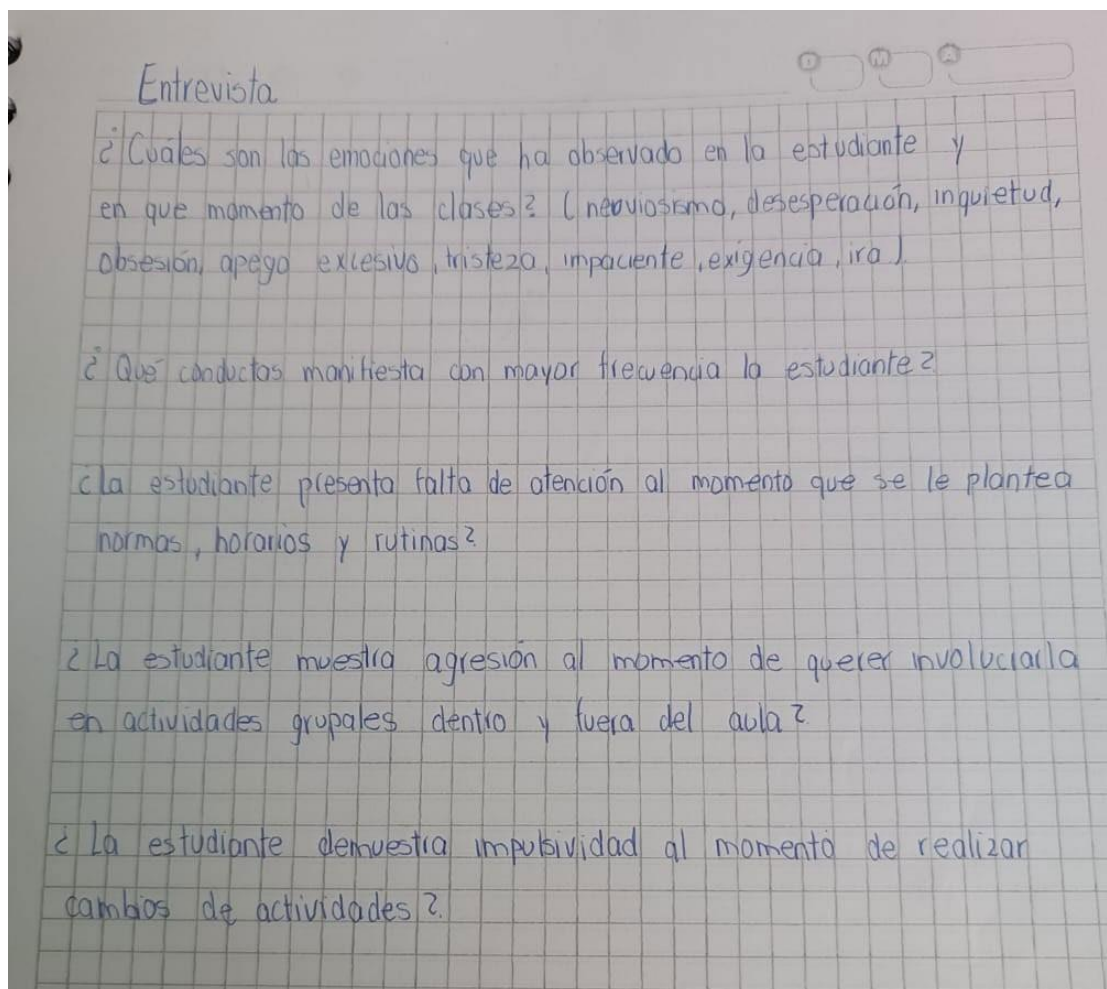 D M A
Entrevista
¿Cuáles son las emociones que ha observado en la estudiante y
en que momento de las clases? (nerviosismo, desesperación, inquietud,
obsesión, apego excesivo, tristeza, impaciente, exigencia, ira)
¿Qué conductas manifiesta con mayor frecuencia la estudiante?
¿La estudiante presenta falta de atención al momento que se le plantea
normas, horarios y rutinas?
¿La estudiante muestra agresión al momento de querer involucrarla
en actividades grupales dentro y fuera del aula?
¿La estudiante demuestra impulsividad al momento de realizar
cambios de actividades?